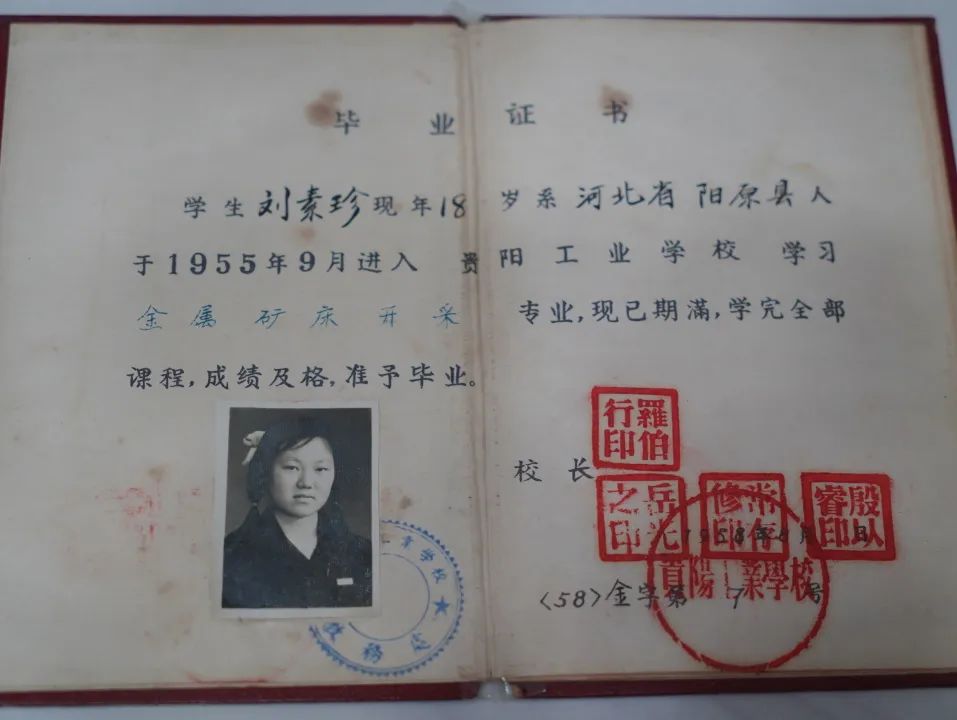 毕业证书
学生刘素珍现年18岁系河北省阳原县人
于1955年9月进入贵阳工业学校学习
金属矿床开采专业,现已期满,学完全部
课程,成绩及格,准予毕业。
校长
羅伯行印
岳光之印
1958年8月 日
陽工業學校
<58>金字第 7 号
业学校
教务